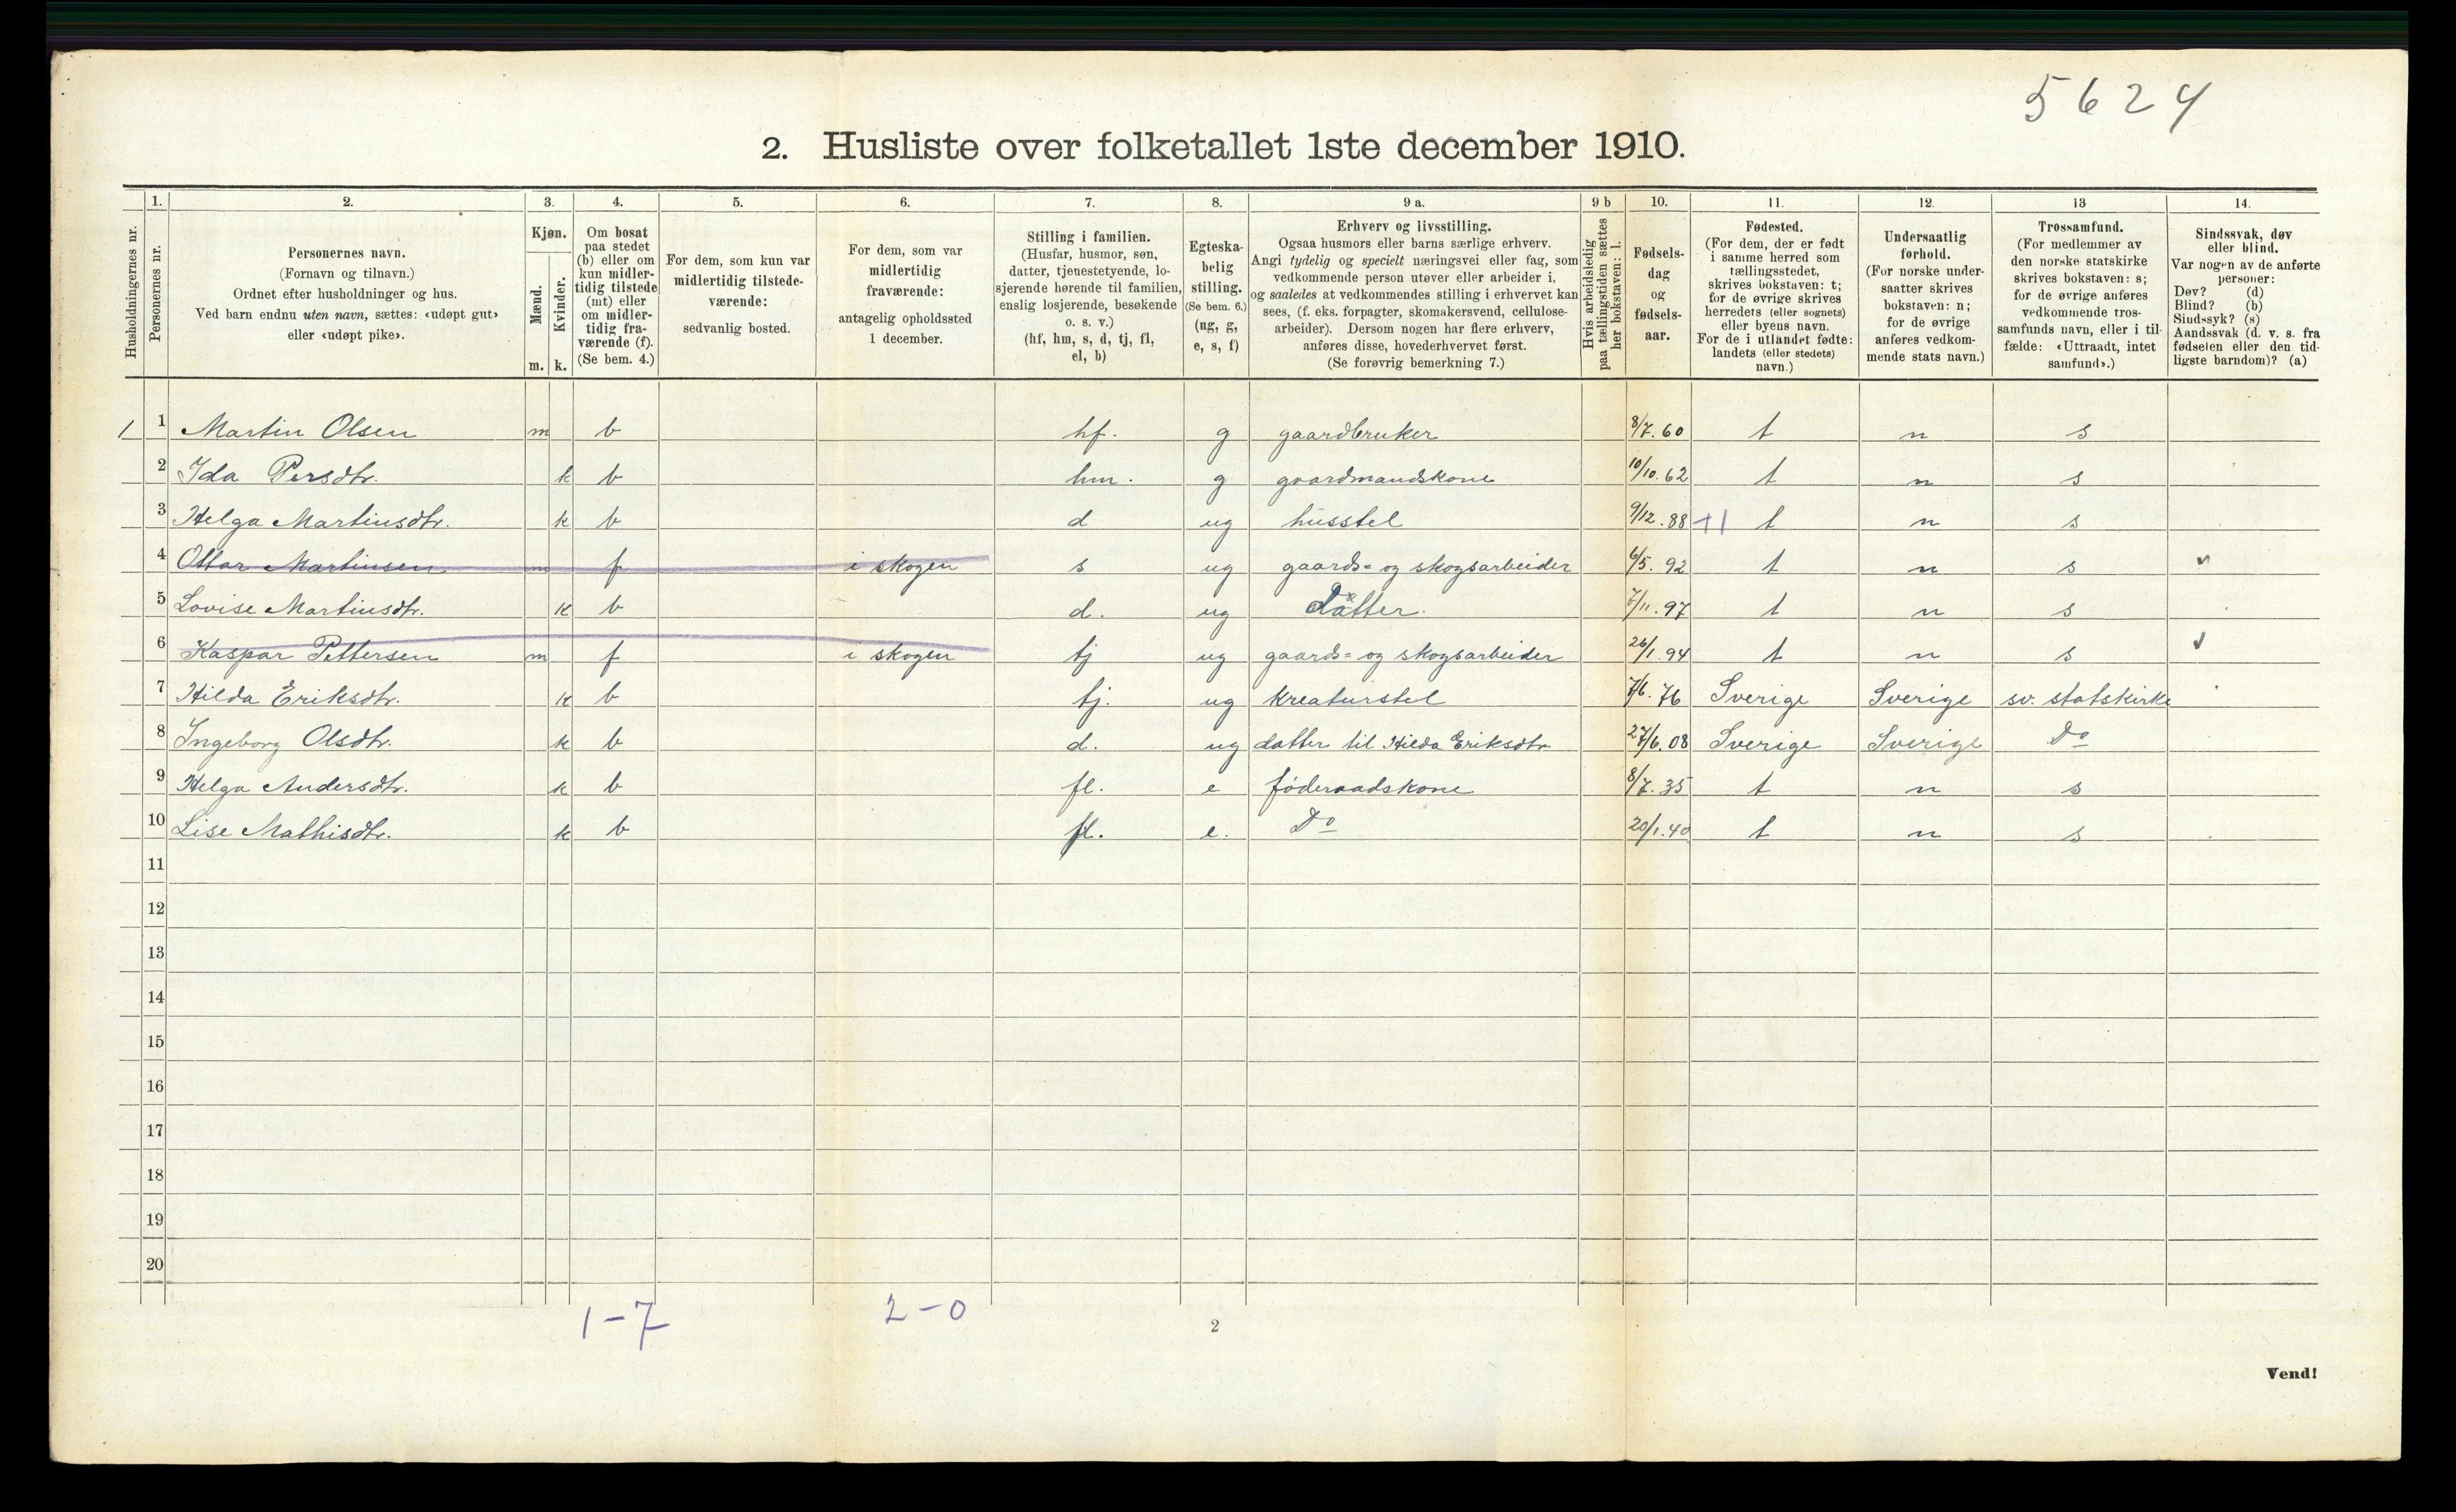 5624
2. Husliste over folketallet 1ste december 1910.
Husholdningernes nr.
1.
Personernes nr.
2.
Personernes navn.
(Fornavn og tilnavn.)
Ordnet efter husholdninger og hus.
Ved barn endnu uten navn, sættes: «udøpt gut»
eller «udøpt pike».
3.
Kjøn.
Mænd.
Kvinder.
m. k.
4.
Om bosat
paa stedet
(b) eller om
kun midler-
tidig tilstede
(mt) eller
om midler-
tidig fra-
værende (f).
(Se bem. 4.)
5.
For dem, som kun var
midlertidig tilstede-
værende:
sedvanlig bosted.
6.
For dem, som var
midlertidig
fraværende:
antagelig opholdssted
1 december.
7.
Stilling i familien.
(Husfar, husmor, søn,
datter, tjenestetyende, lo-
sjerende hørende til familien,
enslig losjerende, besøkende
o. s. v.)
(hf, hm, s, d, tj, fl,
el, b)
8.
Egteska-
belig
stilling.
(Se bem. 6.)
(ug, g,
e, s, f)
9 a.
Erhverv og livsstilling.
Ogsaa husmors eller barns særlige erhverv.
Angi tydelig og specielt næringsvei eller fag, som
vedkommende person utøver eller arbeider i,
og saaledes at vedkommendes stilling i erhvervet kan
sees, (f. eks. forpagter, skomakersvend, cellulose-
arbeider). Dersom nogen har flere erhverv,
anføres disse, hovederhvervet først.
(Se forøvrig bemerkning 7.)
9 b
Hvis arbeidsledig
paa tællingstiden sættes
her bokstaven: l.
10.
Fødsels-
dag
og
fødsels-
aar.
11.
Fødested.
(For dem, der er født
i samme herred som
tællingsstedet,
skrives bokstaven: t;
for de øvrige skrives
herredets (eller sognets)
eller byens navn.
For de i utlandet fødte:
landets (eller stedets)
navn.)
12.
Undersaatlig
forhold.
(For norske under-
saatter skrives
bokstaven: n;
for de øvrige
anføres vedkom-
mende stats navn.)
13
Trossamfund.
(For medlemmer av
den norske statskirke
skrives bokstaven: s;
for de øvrige anføres
vedkommende tros-
samfunds navn, eller i til-
fælde: «Uttraadt, intet
samfund».)
14.
Sindssvak, døv
eller blind.
Var nogen av de anførte
personer:
Døv? (d)
Blind? (b)
Sindssyk? (s)
Aandssvak (d. v. s. fra
fødselen eller den tid-
ligste barndom)? (a)
1 1 Martin Olsen m b hf. g gaardbruker 8/7. 60 t n s
2 Ida Persdtr. k b hm. g gaardmandskone 10/10. 62 t n s
3 Helga Martinsdtr. k b d ug husstel 9/12. 88 +1 t n s
4 Ottar Martinsen m f i skogen s ug gaards= og skogsarbeider 6/5. 92 t n s
5 Lovise Martinsdtr. k b d. ug datter. 7/11. 97 t n s
6 Kaspar Pettersen m f i skogen tj ug gaards= og skogsarbeider 26/1. 94 t n s
7 Hilda Eriksdtr. k b tj. ug kreaturstel 7/6. 76 Sverige Sverige sv. statskirke
8 Ingeborg Olsdtr. k b d. ug datter til Hilda Eriksdtr. 27/6. 08 Sverige Sverige Do
9 Helga Andersdtr. k b fl. e føderaadskone 8/7. 35 t n s
10 Lise Mathisdtr. k b fl. e. Do 20/1. 40 t n s
11
12
13
14
15
16
17
18
19
20
1-7 2-0
2
Vend!